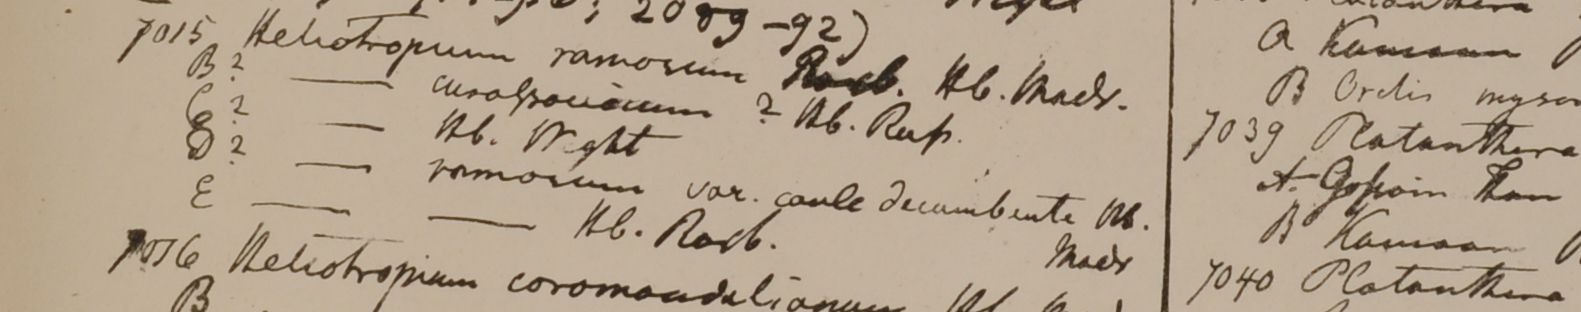 2089-92)
7015 Heliotropium ramosum Roxb. Hb. Madr.
B? — ? Hb. Rup.
C? — Hb. Wight
D? — ramosum var. caule decumbente Hb. Madr
E — — Hb. Roxb.
7016 Heliotropium coromandelianum Hb.
B
A Kamaon
B Orchis
7039 Platanthera
A. Gossain Than
B Kamaon
7040 Platanthera